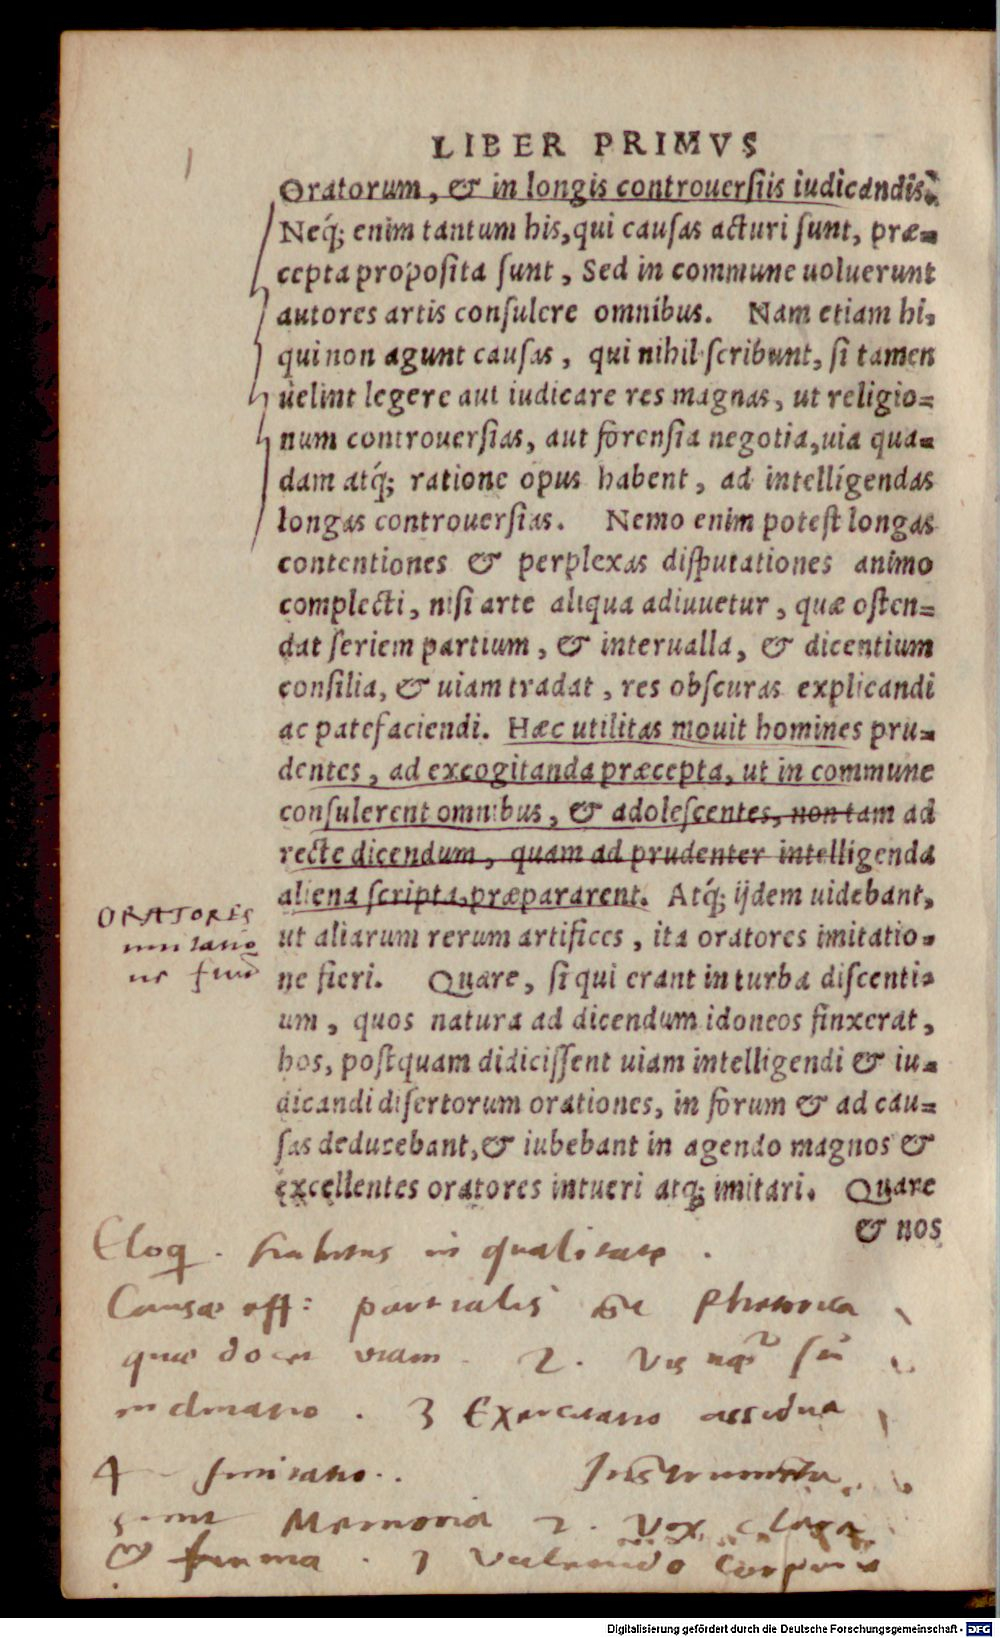 LIBER PRIMVS
Oratorum, & in longis controuersiis iudicandis.
Neq́; enim tantum his, qui causas acturi sunt, præ-
cepta proposita sunt, Sed in commune uoluerunt
autores artis consulere omnibus. Nam etiam hi,
qui non agunt causas, qui nihil scribunt, si tamen
uelint legere aut iudicare res magnas, ut religio-
num controuersias, aut forensia negotia, uia qua-
dam atq́; ratione opus habent, ad intelligendas
longas controuersias. Nemo enim potest longas
contentiones & perplexas disputationes animo
complecti, nisi arte aliqua adiuuetur, quæ osten-
dat seriem partium, & interualla, & dicentium
consilia, & uiam tradat, res obscuras explicandi
ac patefaciendi. Hæc utilitas mouit homines pru-
dentes, ad excogitanda præcepta, ut in commune
consulerent omnibus, & adolescentes, non tam ad
recte dicendum, quam ad prudenter intelligenda
aliena scripta, præpararent. Atq́; ijdem uidebant,
ORATORES
imitatio
ne fiunt
ut aliarum rerum artifices, ita oratores imitatio-
ne fieri. Quare, si qui erant in turba discenti-
um, quos natura ad dicendum idoneos finxerat,
hos, postquam didicissent uiam intelligendi & iu-
dicandi disertorum orationes, in forum & ad cau-
sas deducebant, & iubebant in agendo magnos &
excellentes oratores intueri atq; imitari. Quare
& nos
Eloq. habitus in qualitate.
Causæ eff: partialis Rhetorica
quæ docet viam. 2. Vis
inclinatio. 3 Exercitatio assidua
4 Imitatio. Instrumenta
sunt Memoria 2. Vox
firma. 3 Valetudo corporis
Digitalisierung gefördert durch die Deutsche Forschungsgemeinschaft - DFG